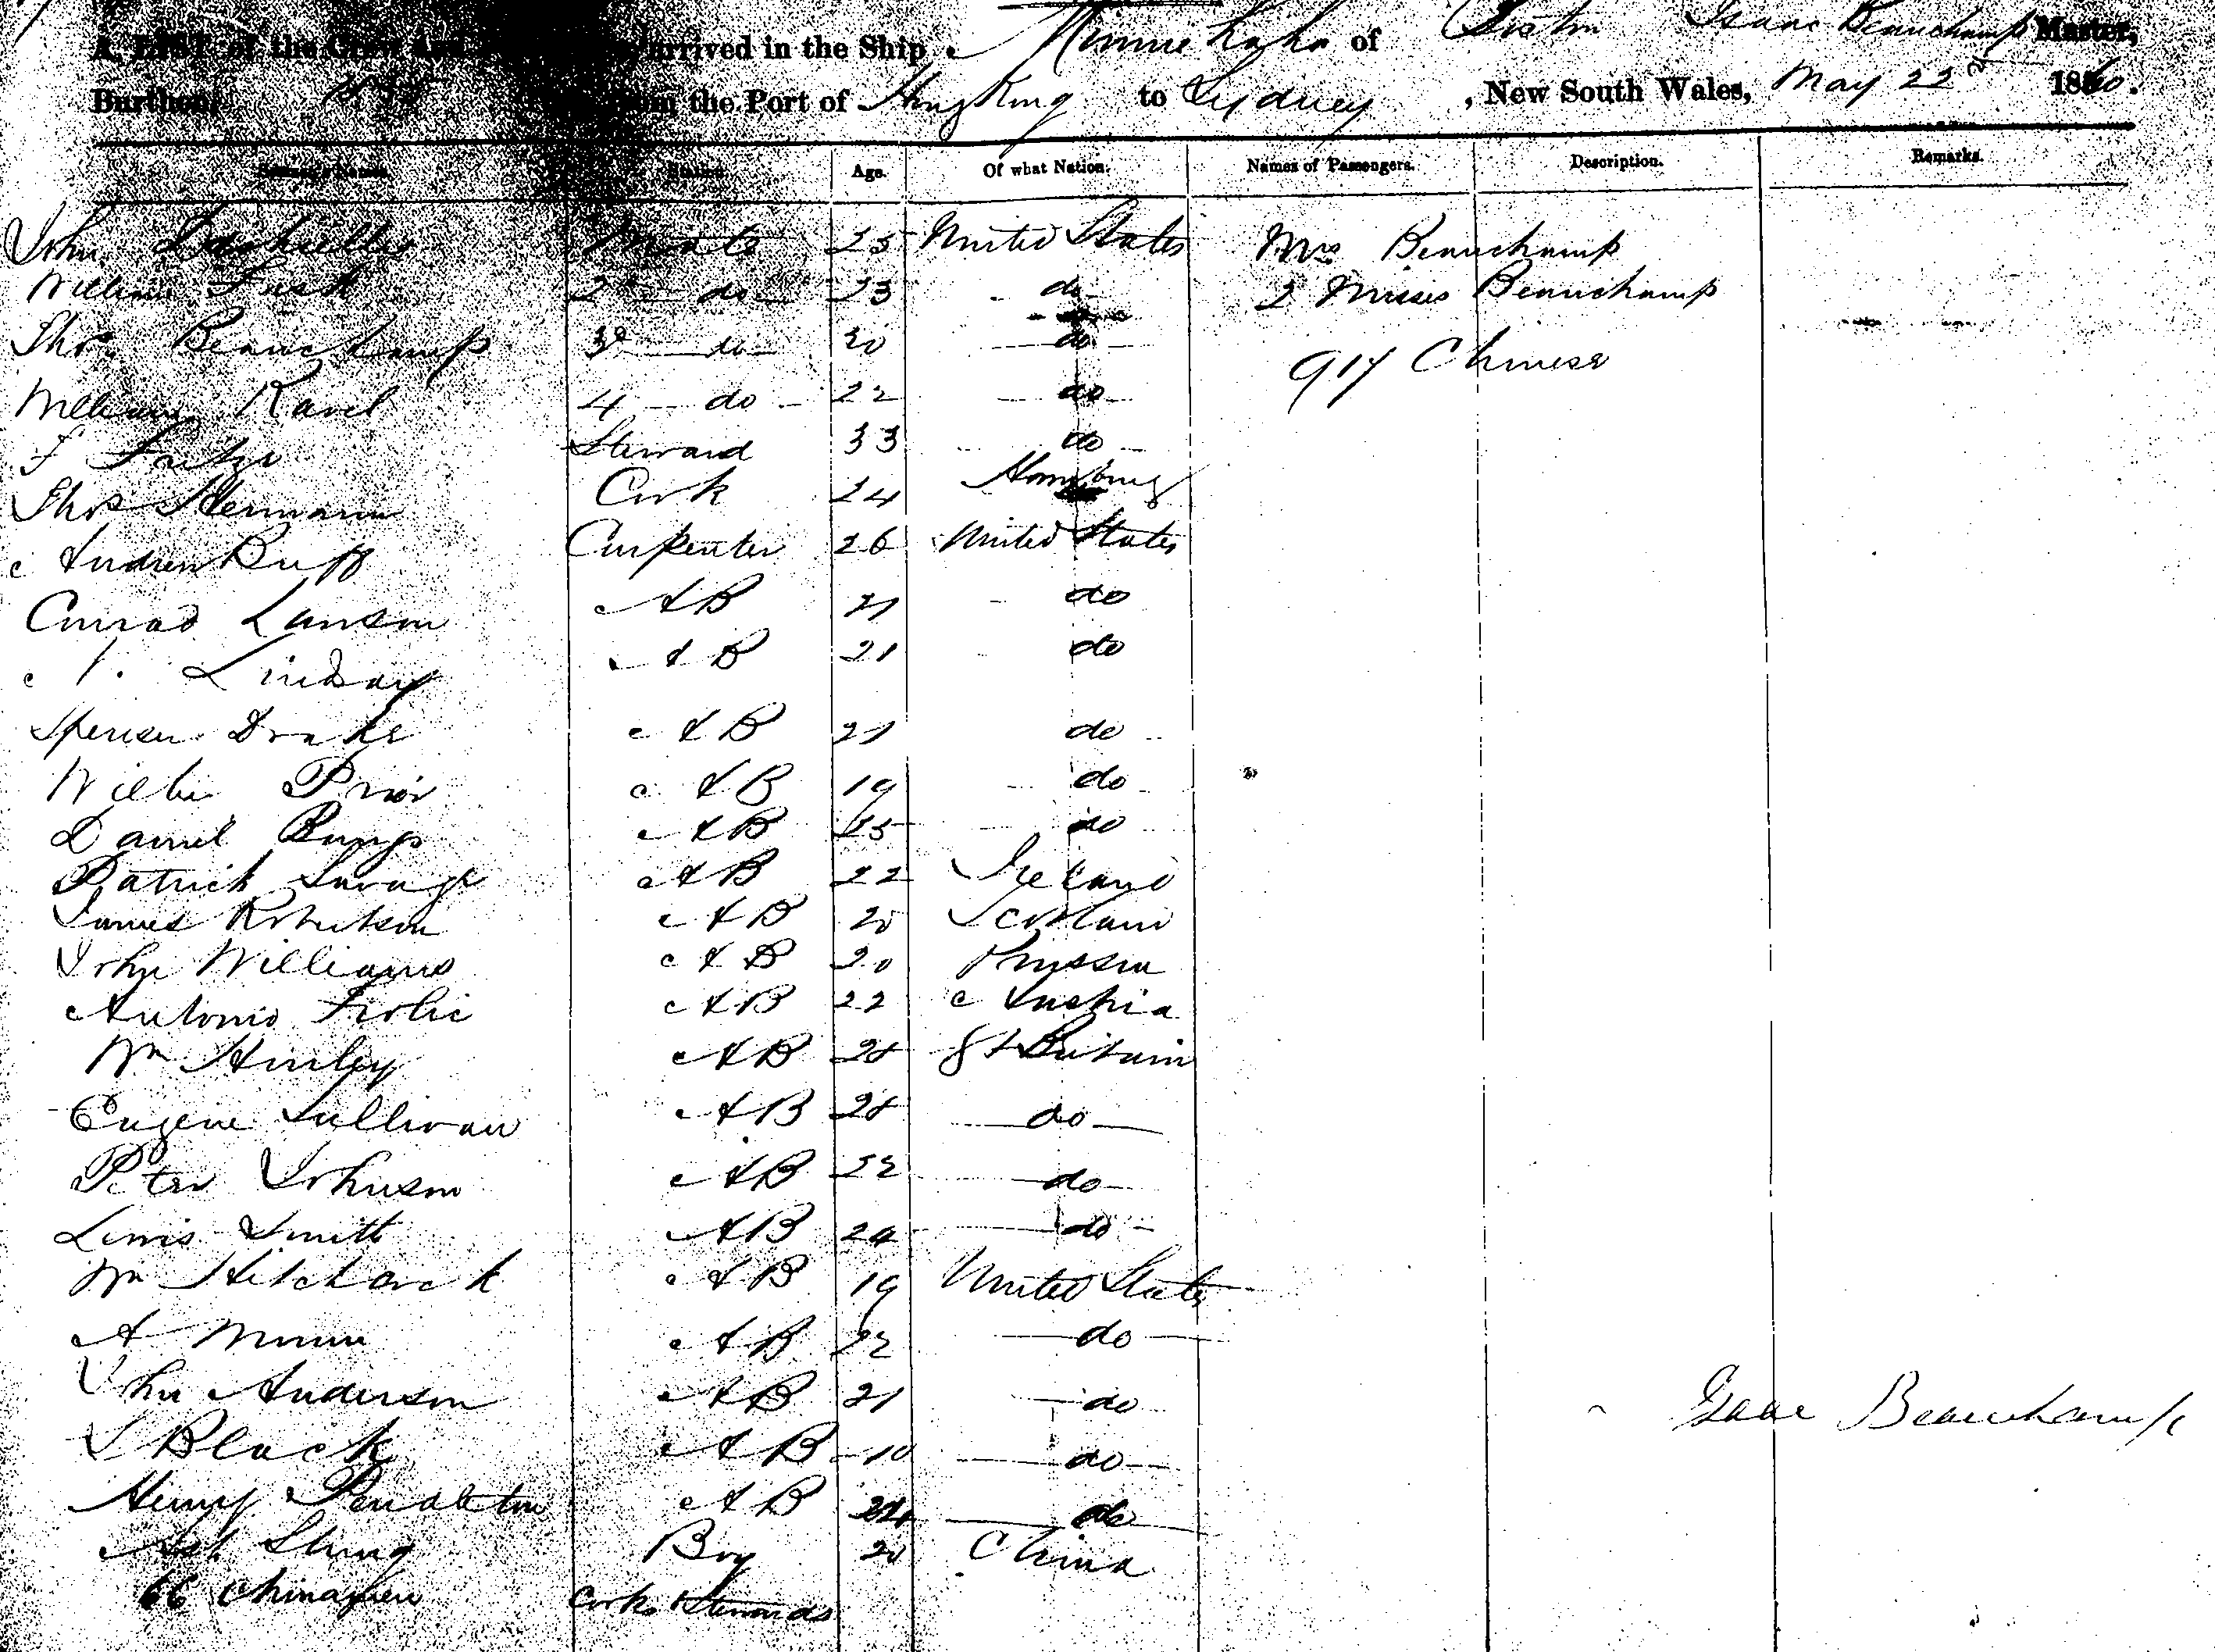 A LIST of the Crew and arrived in the Ship Minnie haha of Boston Isaac Beauchamp Master,
Burthen, from the Port of Hong Kong to Sydney, New South Wales, May 22d 1860.
Seamen's Names. Station. Age. Of what Nation. Names of Passengers. Description. Remarks.
John Mate 25 United States Mrs Beauchamp
William Fisk 2d do 23 do 2 Misses Beauchamp
Thos Beauchamp 3d do 20 do 917 Chinese
William Ravel 4 do 22 do
F Steward 33 do
Thos Hermann Cook 24 Hamburg
Andrew Buff Carpenter 26 United States
Conrad Lanson AB 21 do
Lindsay AB 21 do
Spencer Drake AB 21 do
Prior AB 19 do
Daniel AB do
Patrick Savage AB 22 Ireland
James Robertson AB 20 Scotland
John Williams AB 20 Prussia
Antonio AB 22 Austria
Wm Hurley AB 28 Gt Britain
Eugene Sullivan AB 28 do
Peter Johnson AB 22 do
Lewis Smith AB 24 do
Wm Hitchcock AB 19 United States
A AB 22 do
John Anderson AB 21 do
Black AB do
Henry Pendleton AB do
Ah Shing Boy 20 China
66 Chinamen Cooks & Stewards
Isaac Beauchamp